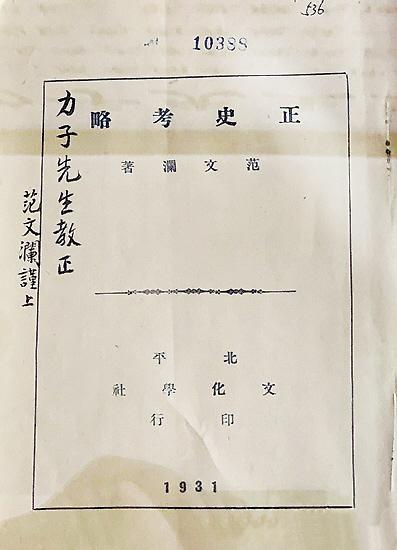 536
10388
正史考略
范文瀾著
力子先生教正
范文瀾謹上
北平
文化學社
印行
1931